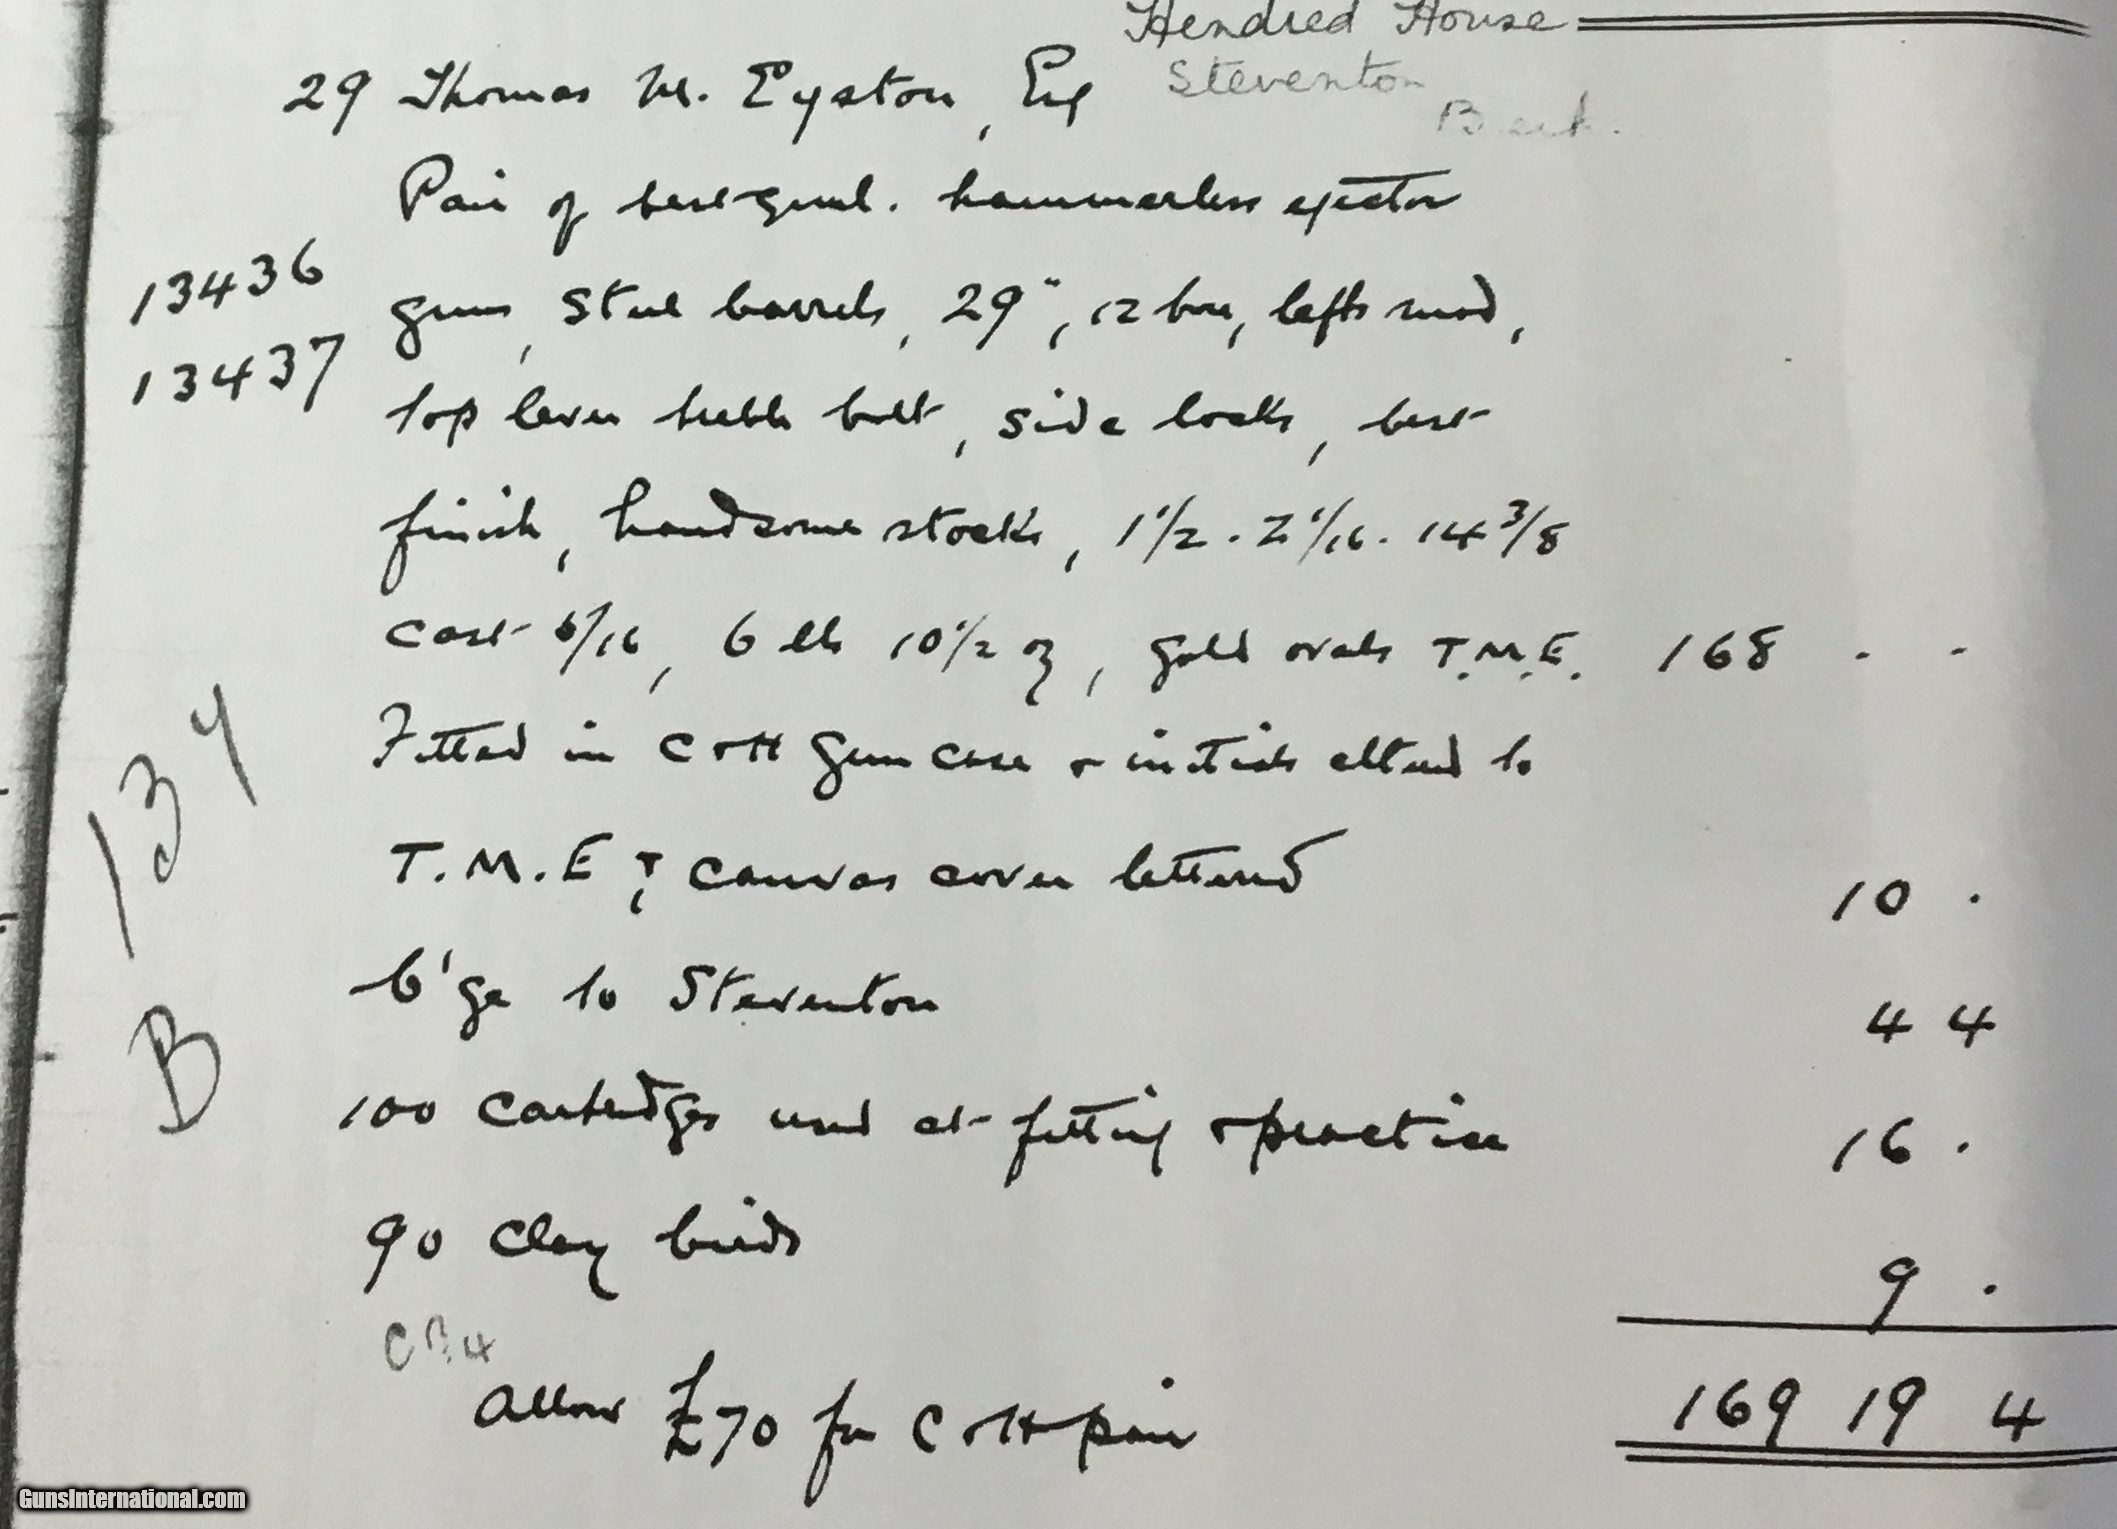 Hendred House
29 Thomas M. Eyston, Esq Steventon
Berk.
Pair of best qual. hammerless ejector
13436 guns, steel barrels, 29", 12 bore, lefts mod,
13437 top lever treble bolt, side locks, best
finish, handsome stocks, 1 1/2 . 2 1/16 . 14 3/8
cast 6/16, 6 lb 10 1/2 oz, gold ovals T.M.E. 168 . .
Fitted in C & H gun case & initials altered to
134 T.M.E ; canvas cover lettered 10 .
B c'ge to Steventon 4 4
100 cartridges used at fitting & practice 16 .
90 clay birds 9 .
Allow £70 for C & H pair 169 19 4
GunsInternational.com